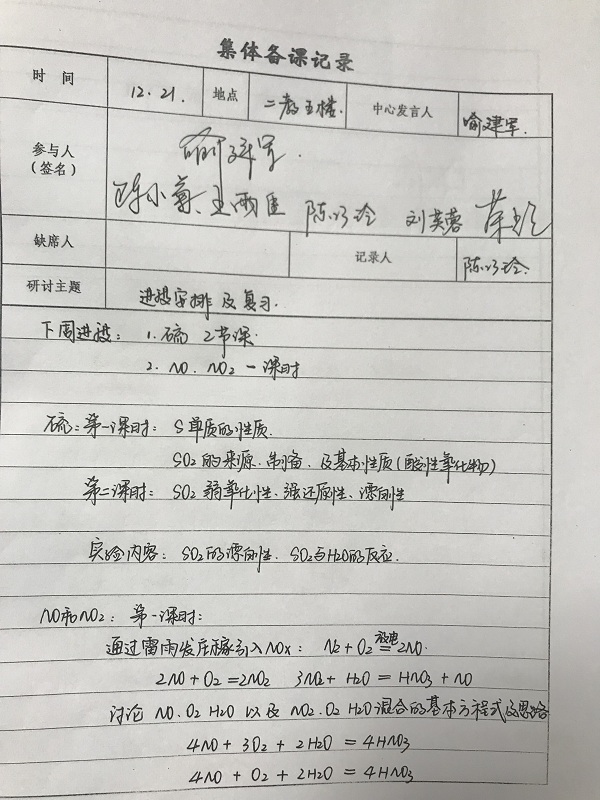 集体备课记录
时 间 12.21. 地点 二教五楼. 中心发言人 喻建军.
参与人 喻建军.
（签名） 陈小菊、王雨臣 陈巧玲 刘芙蓉
缺席人 记录人 陈巧玲.
研讨主题 进授安排及复习.
下周进授： 1. 硫 2节课.
2. NO. NO2 一课时
硫：第一课时： S单质的性质.
SO2的来源. 制备. 及基本性质(酸性氧化物)
第二课时： SO2 弱氧化性、强还原性、漂白性
实验内容： SO2的漂白性. SO2与H2O的反应.
NO和NO2： 第一课时：
通过雷雨发庄稼引入NOx： N2+O2 放电= 2NO.
2NO+O2=2NO2 3NO2+ H2O = HNO3 + NO
讨论 NO. O2 H2O 以及 NO2. O2 H2O 混合的基本方程式及思路
4NO + 3O2 + 2H2O = 4HNO3
4NO + O2 + 2H2O = 4HNO3